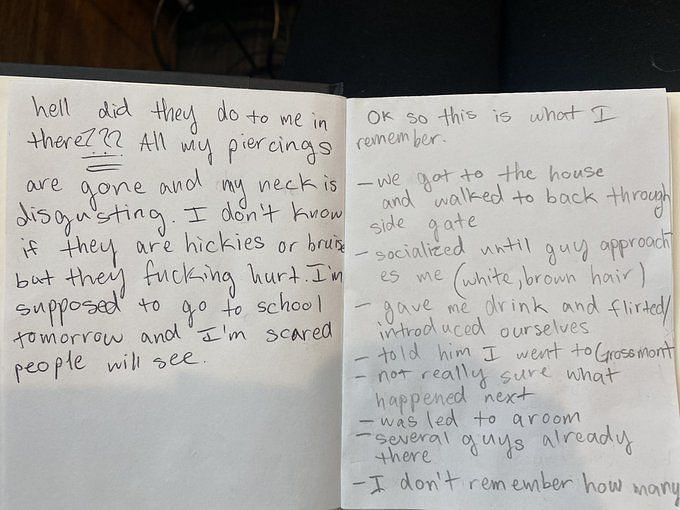 hell did they do to me in
there??? All my piercings
are gone and my neck is
disgusting. I don't know
if they are hickies or bruise
but they fucking hurt. I'm
supposed to go to school
tomorrow and I'm scared
people will see.
OK so this is what I
remember.
- we got to the house
and walked to back through
side gate
- socialized until guy approach
es me (white, brown hair)
- gave me drink and flirted/
introduced ourselves
- told him I went to Grossmont
- not really sure what
happened next
- was led to a room
- several guys already
there
- I don't remember how many